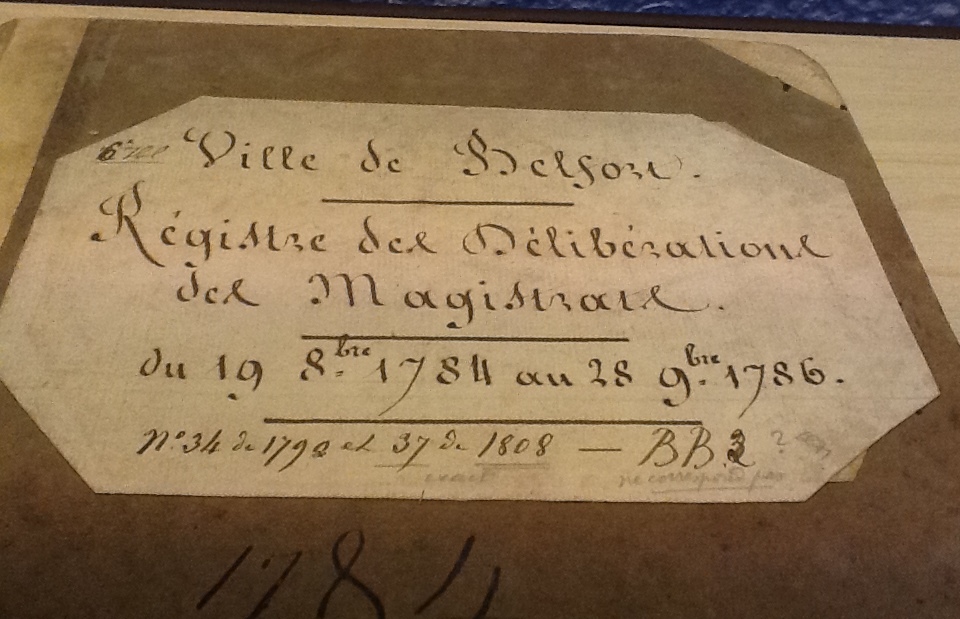 Ville de Belfort.
Régistre des Délibérations
des Magistrats.
du 19 8.bre 1784 au 28 9.bre 1786.
N.o 34 de 1792 et 37 de 1808 — BB. ?
exact ne correspond pas
1784